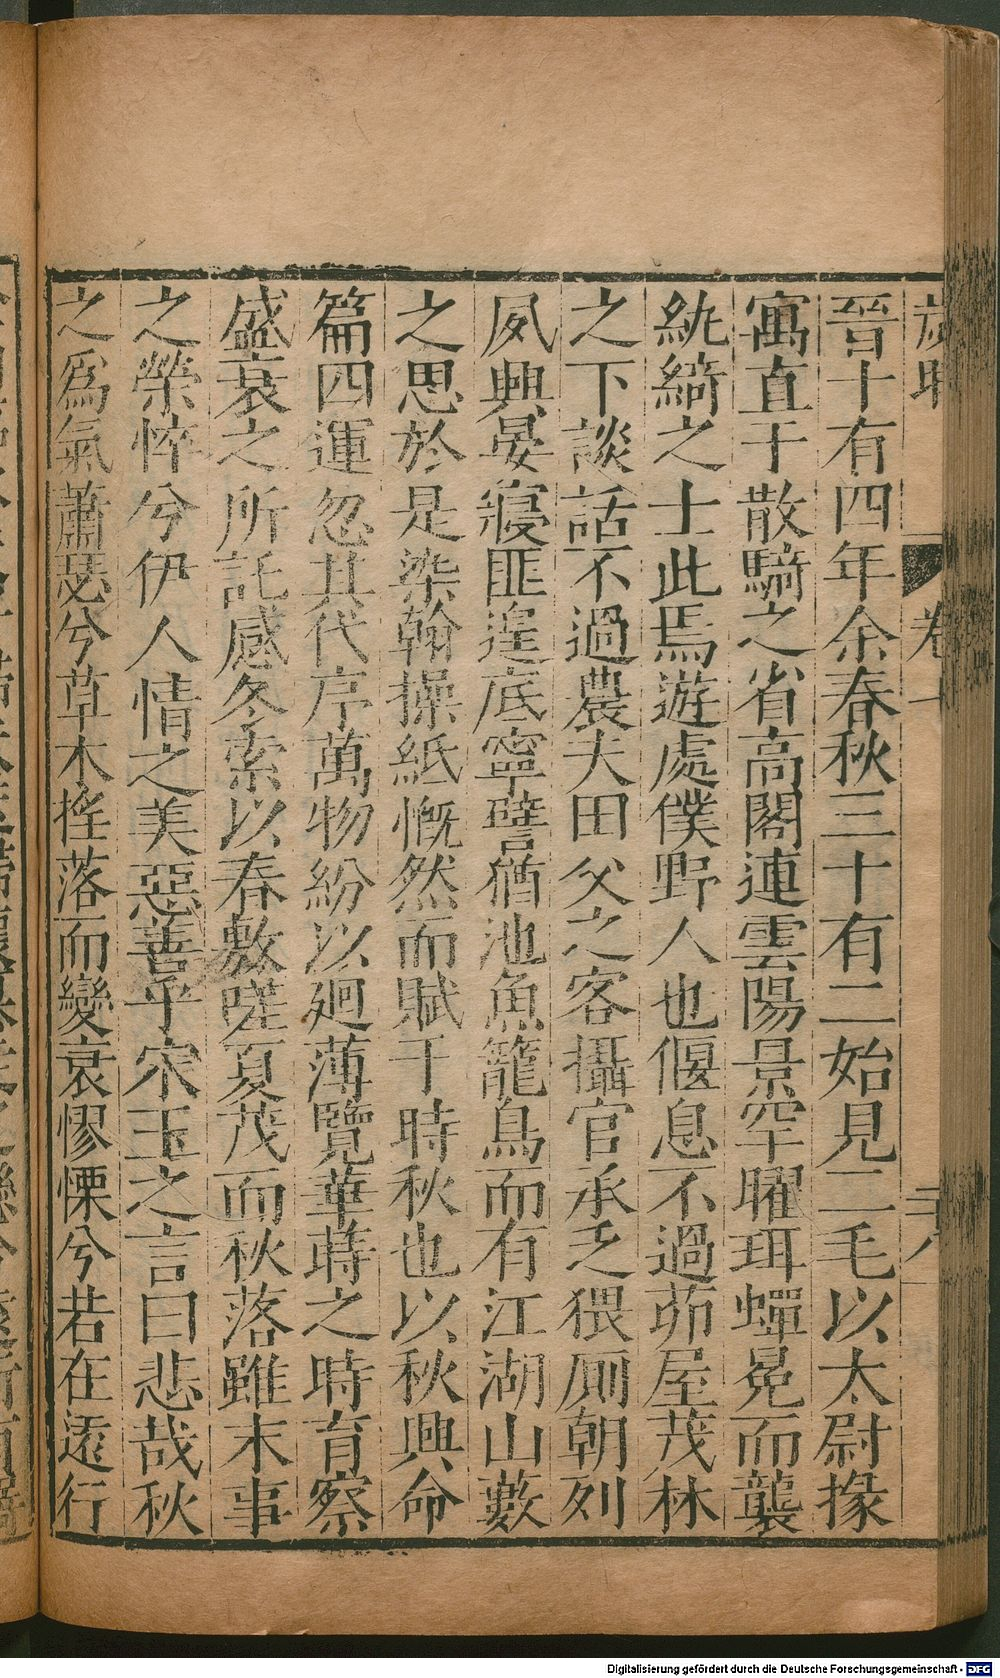 歲時
卷一
三八
晉十有四年余春秋三十有二始見二毛以太尉掾
寓直于散騎之省高閣連雲陽景罕曜珥蟬冕而襲
紈綺之士此焉遊處僕野人也偃息不過茆屋茂林
之下談話不過農夫田父之客攝官承乏猥厠朝列
夙興晏寢匪遑底寧譬猶池魚籠鳥而有江湖山藪
之思於是染翰操紙慨然而賦于時秋也以秋興命
篇四運忽其代序萬物紛以廻薄覽華蒔之時育察
盛衰之所託感冬索以春敷嗟夏茂而秋落雖末事
之榮悴兮伊人情之美惡善乎宋玉之言曰悲哉秋
之爲氣蕭瑟兮草木搖落而變衰憀慄兮若在遠行
Digitalisierung gefördert durch die Deutsche Forschungsgemeinschaft - DFG